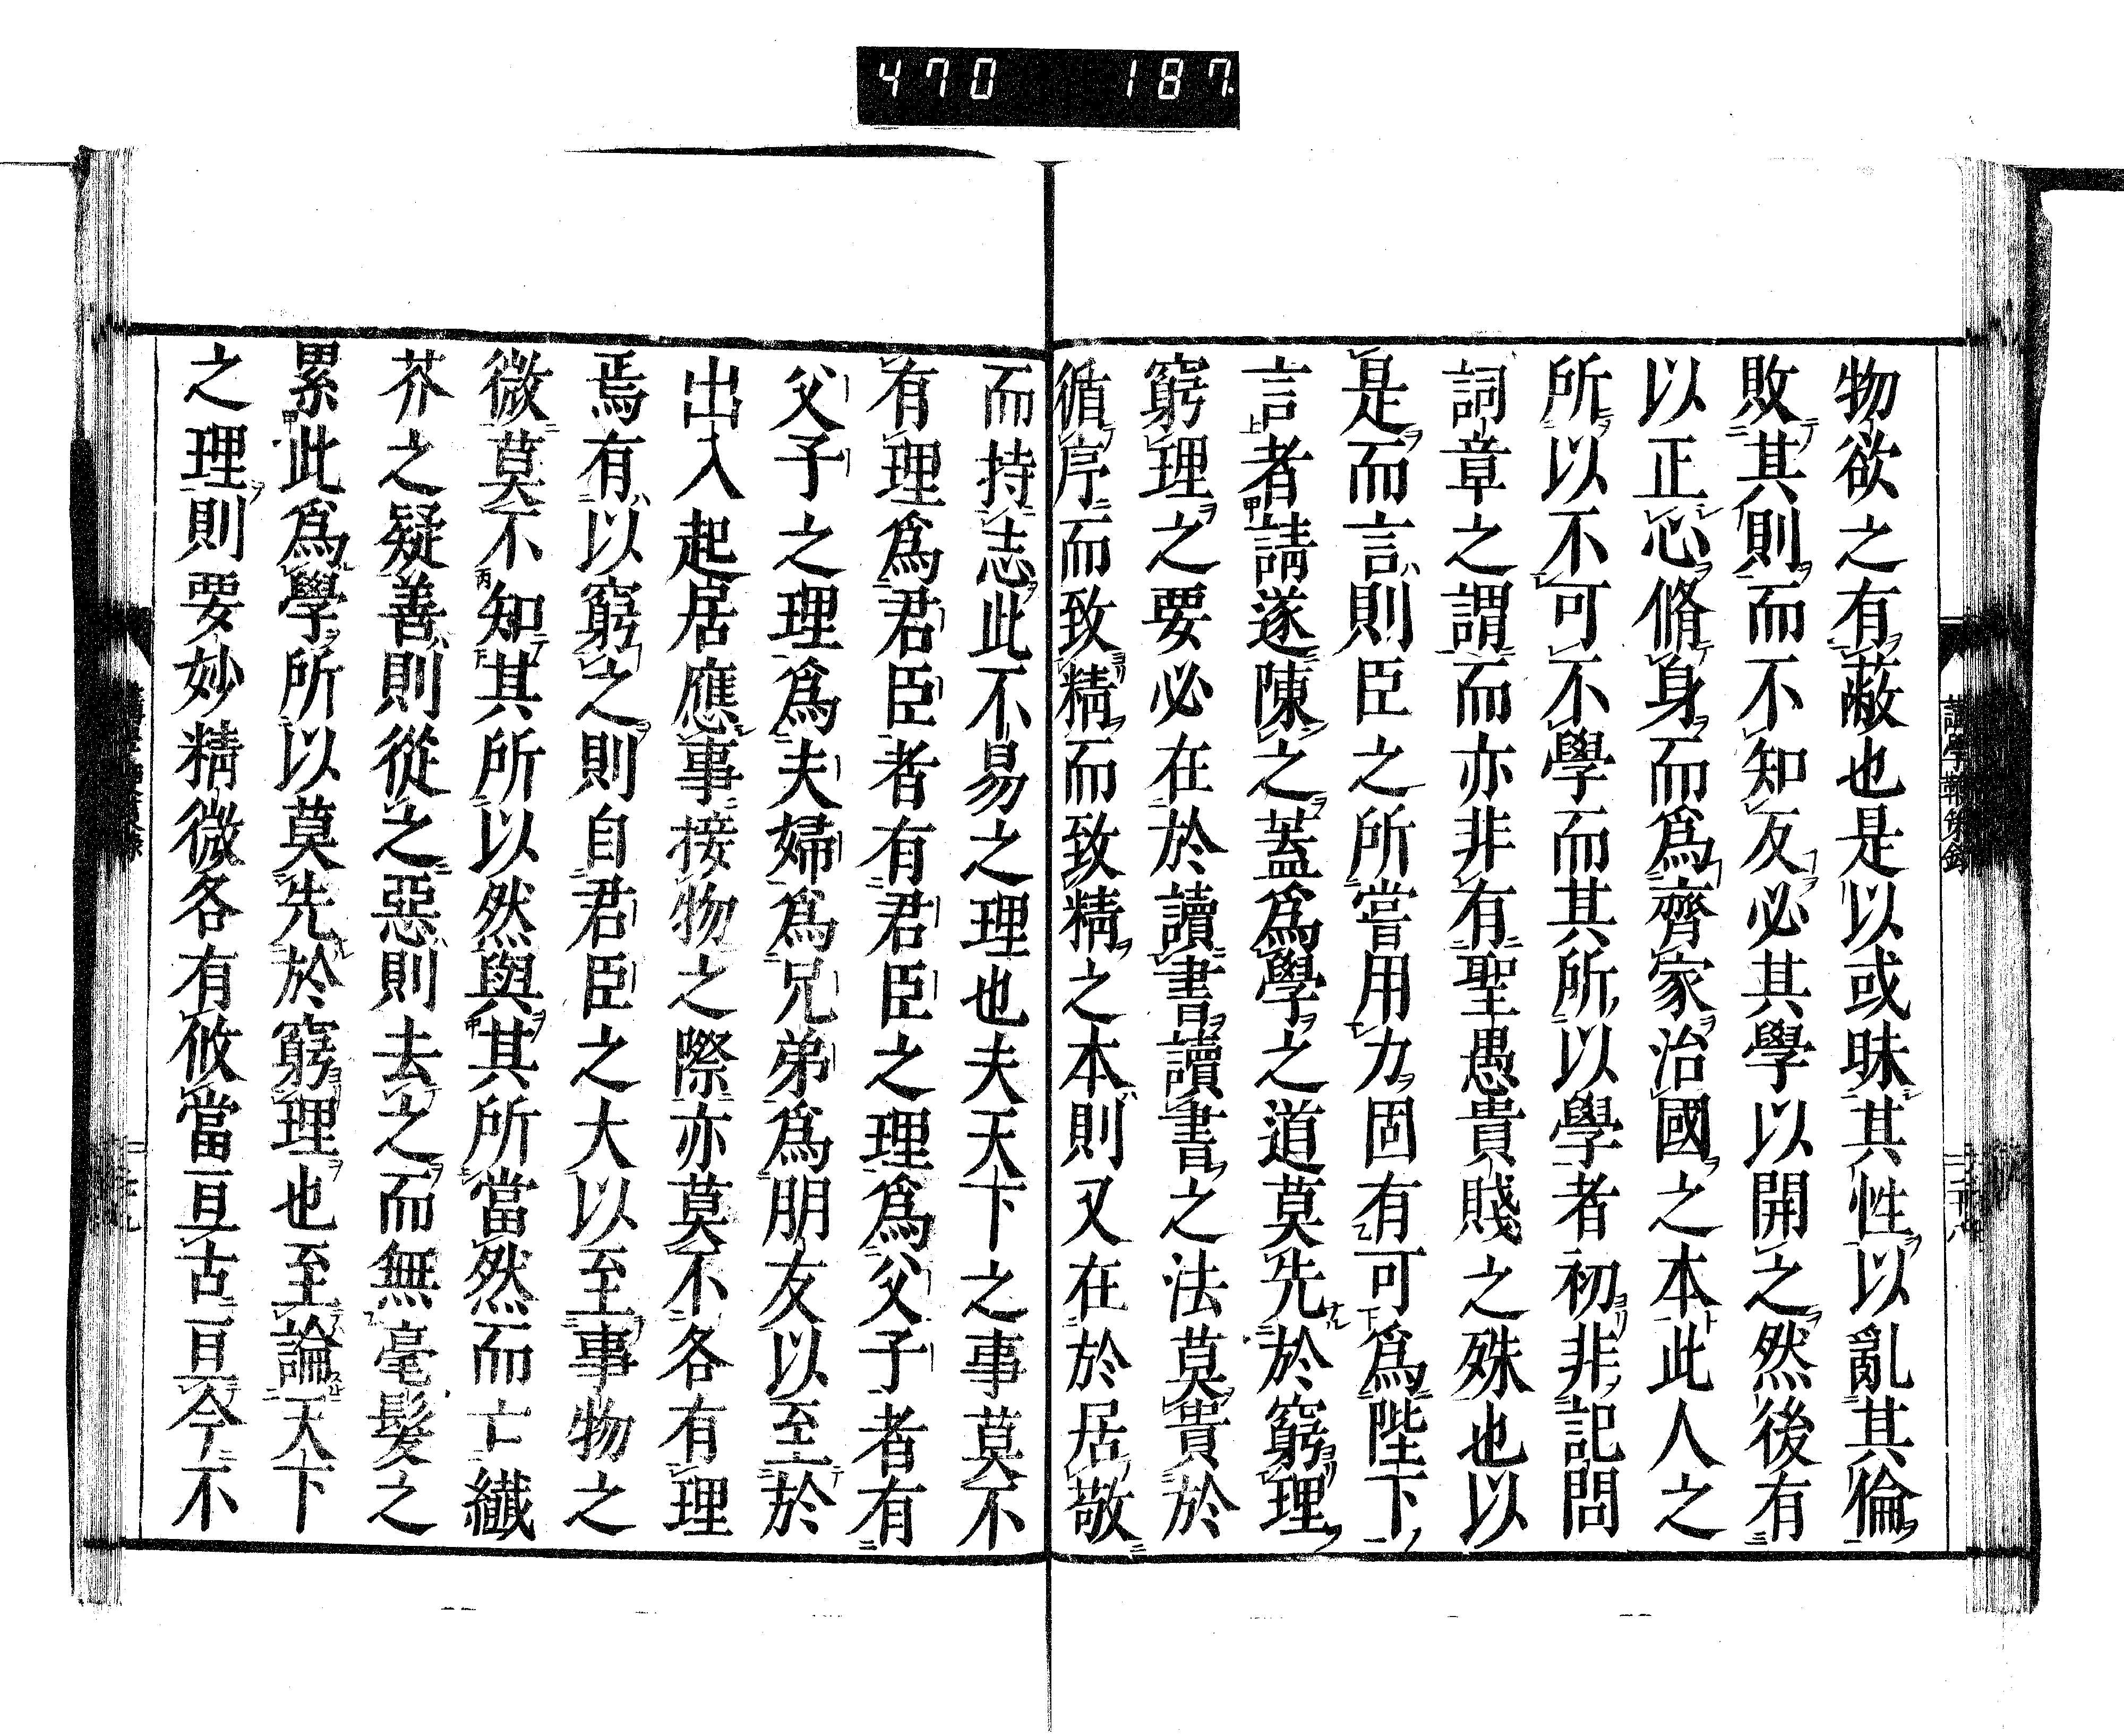 470 187
物欲之有蔽也是以或昧其性以亂其倫
敗其則而不知反必其學以開之然後有
以正心脩身而爲齊家治國之本此人之
所以不可不學而其所以學者初非記問
詞章之謂而亦非有聖愚貴賤之殊也以
是而言則臣之所嘗用力固有可爲陛下
言者請遂陳之蓋爲學之道莫先於窮理
窮理之要必在於讀書讀書之法莫貴於
循序而致精而致精之本則又在於居敬
而持志此不易之理也夫天下之事莫不
有理爲君臣者有君臣之理爲父子者有
父子之理爲夫婦爲兄弟爲朋友以至於
出入起居應事接物之際亦莫不各有理
焉有以窮之則自君臣之大以至事物之
微莫不知其所以然與其所當然而亡纖
芥之疑善則從之惡則去之而無毫髮之
累此爲學所以莫先於窮理也至論天下
之理則要妙精微各有攸當亘古亘今不